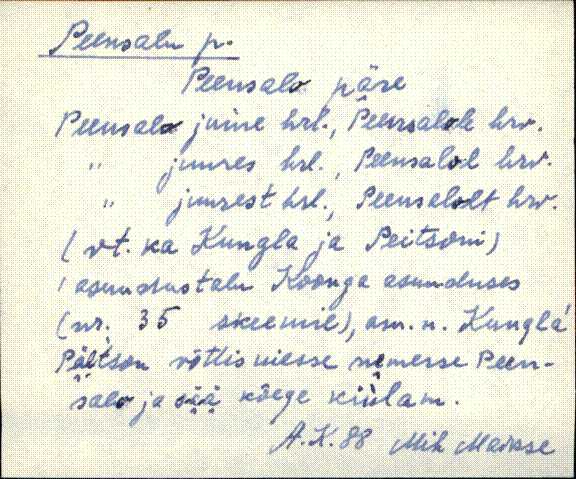 Peensalu p.
Peensalo päre
Peensalo juure hrl., Peensalole hrv.
" juures hrl., Peensalol hrv.
" juurest hrl., Peensalolt hrv.
(vt. ka Kungla ja Peitsoni)
asundustalu Koonga asunduses
(nr. 35 skeemil), asu. n. Kungla
Päitson võttis niesse nemesse Peen-
salo ja sää kõege kiülam.
A.K. 88 Mih